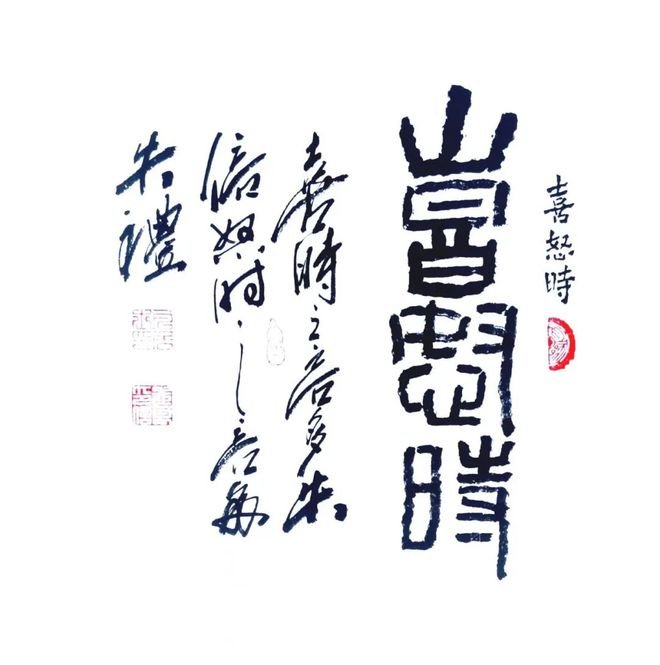 喜怒時
喜怒時
喜時之言多失
信怒时之言
失禮